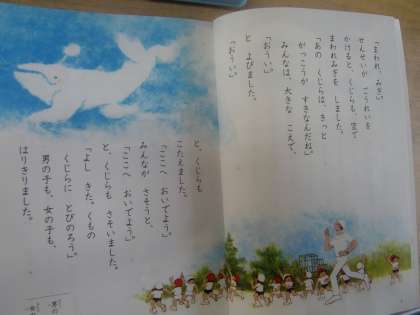 「まわれ、みぎ。」
せんせいが ごうれいを
かけると、くじらも、空で
まわれみぎを しました。
「あの くじらは、きっと
がっこうが すきなんだね。」
みんなは、大きな こえで、
「おうい。」
と よびました。
「おうい。」
と、くじらも
こたえました。
「ここへ おいでよう。」
みんなが さそうと、
「ここへ おいでよう。」
と、くじらも さそいました。
「よし きた。くもの
くじらに とびのろう。」
男の子も、女の子も、
はりきりました。